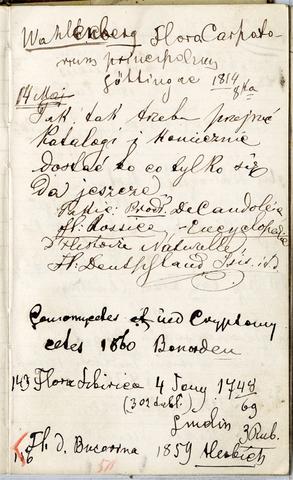 Wahlenberg Flora Carpato-
rum principalium
Göttingae 1814
8vo
14 Maj
Tak, tak trzeba przejrzeć
Katalogi i koniecznie
dostać to co tylko się
da jeszcze
Takie: Prodr. DeCandolle'a
fl. Rossica, Encyclopedie
d'Histoire Naturelle,
Fl. Deutschland Isis. itd
Coniomycetes und Cryptomy
cetes 1860 Bonorden
143 Flora Sibirica 4 Tomy 1748
(302 tabl.) 69
Gmelin 3 Rub.
Fl. d. Bucovina 1859 Herbich